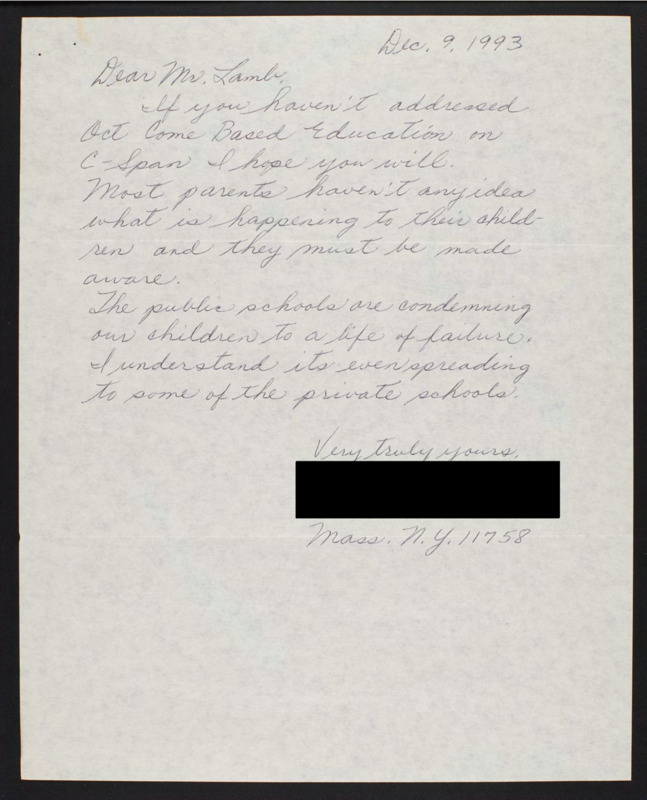 Dec. 9, 1993
Dear Mr. Lamb,
If you haven't addressed
Oct Come Based Education on
C-Span I hope you will.
Most parents haven't any idea
what is happening to their child-
ren and they must be made
aware.
The public schools are condemning
our children to a life of failure.
I understand its even spreading
to some of the private schools.
Very truly yours,
Mass. N.Y. 11758